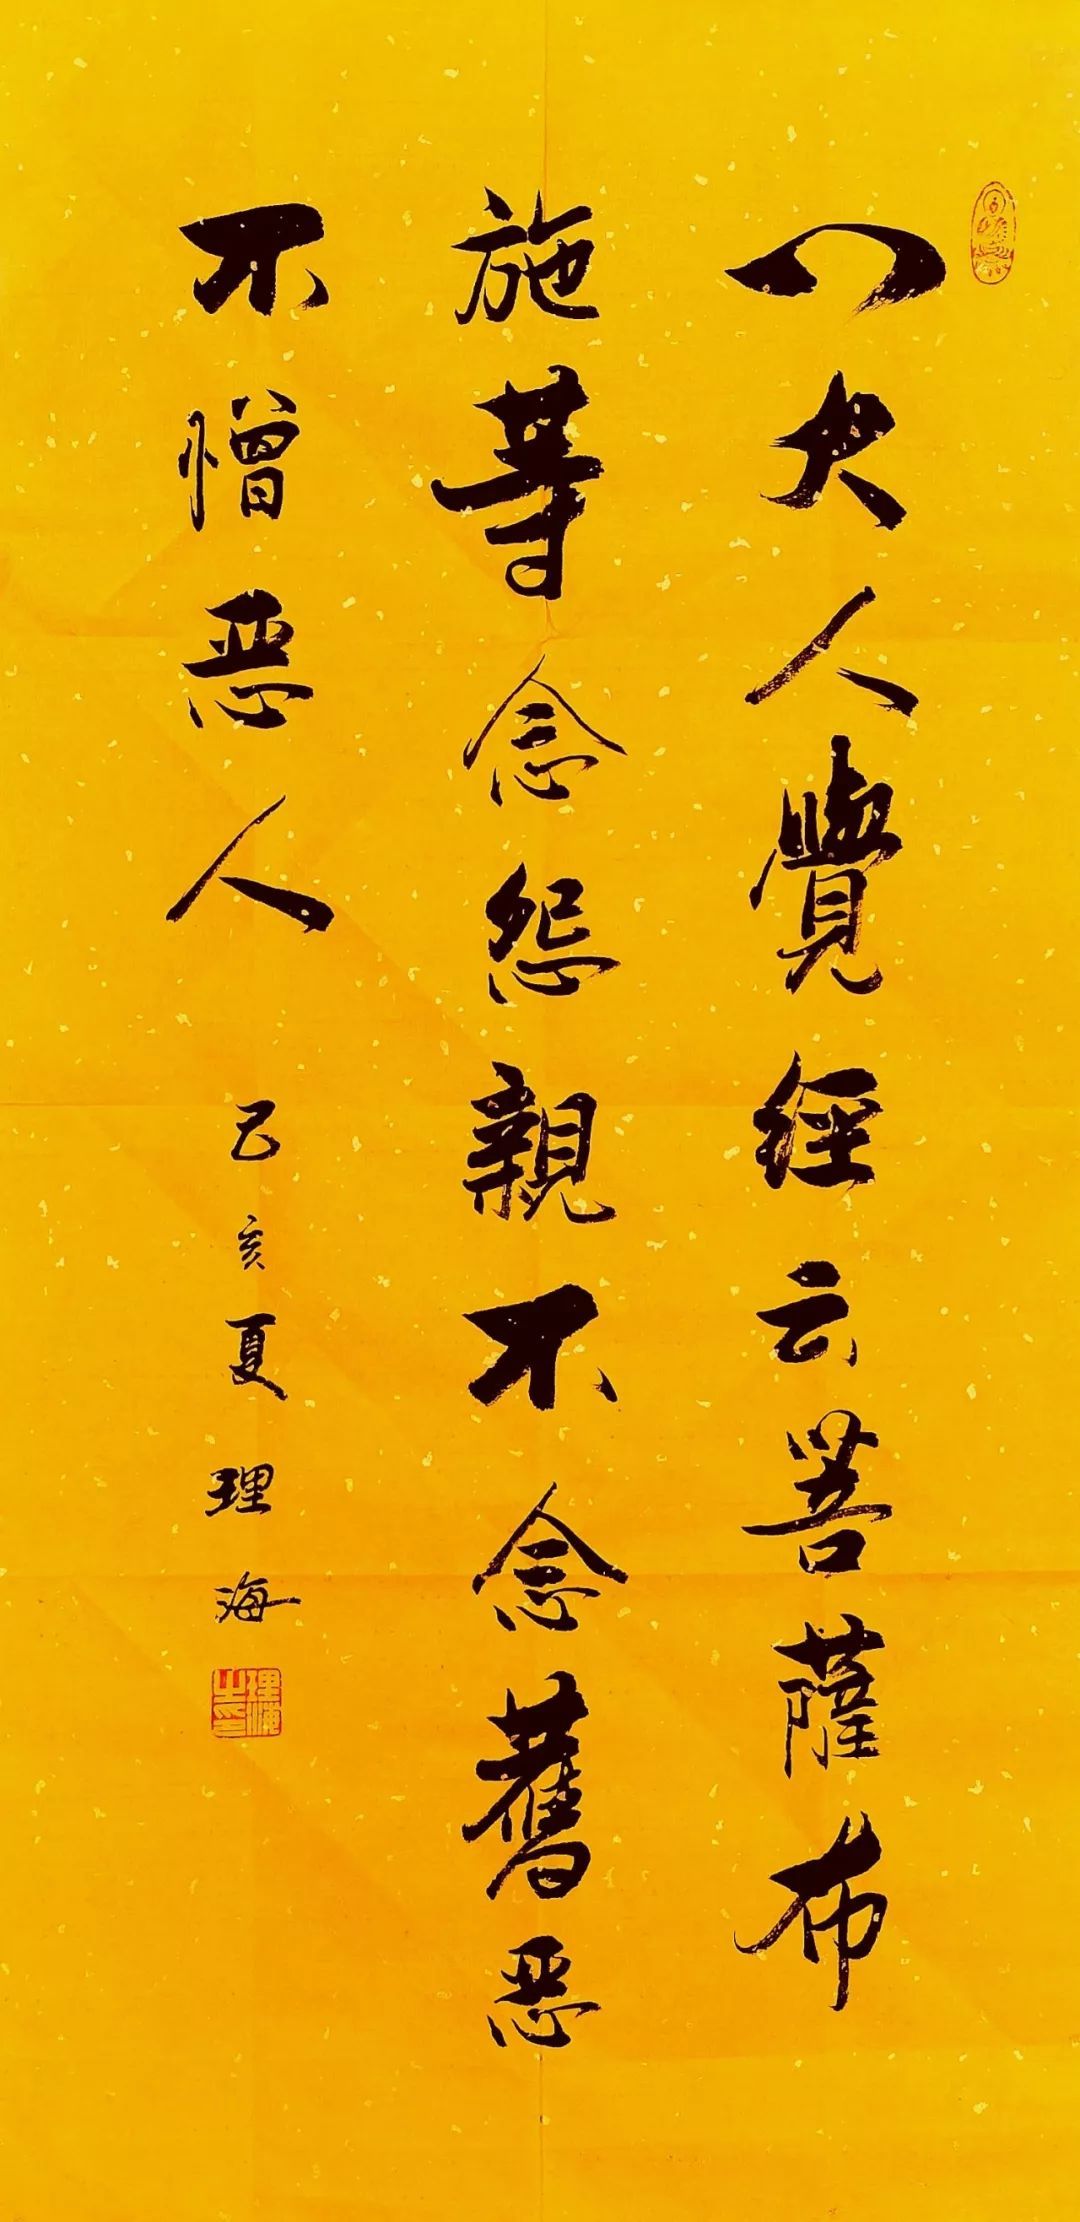 八大人覺經云菩薩布
施等念怨親不念舊惡
不憎惡人
己亥夏理海
理海之印